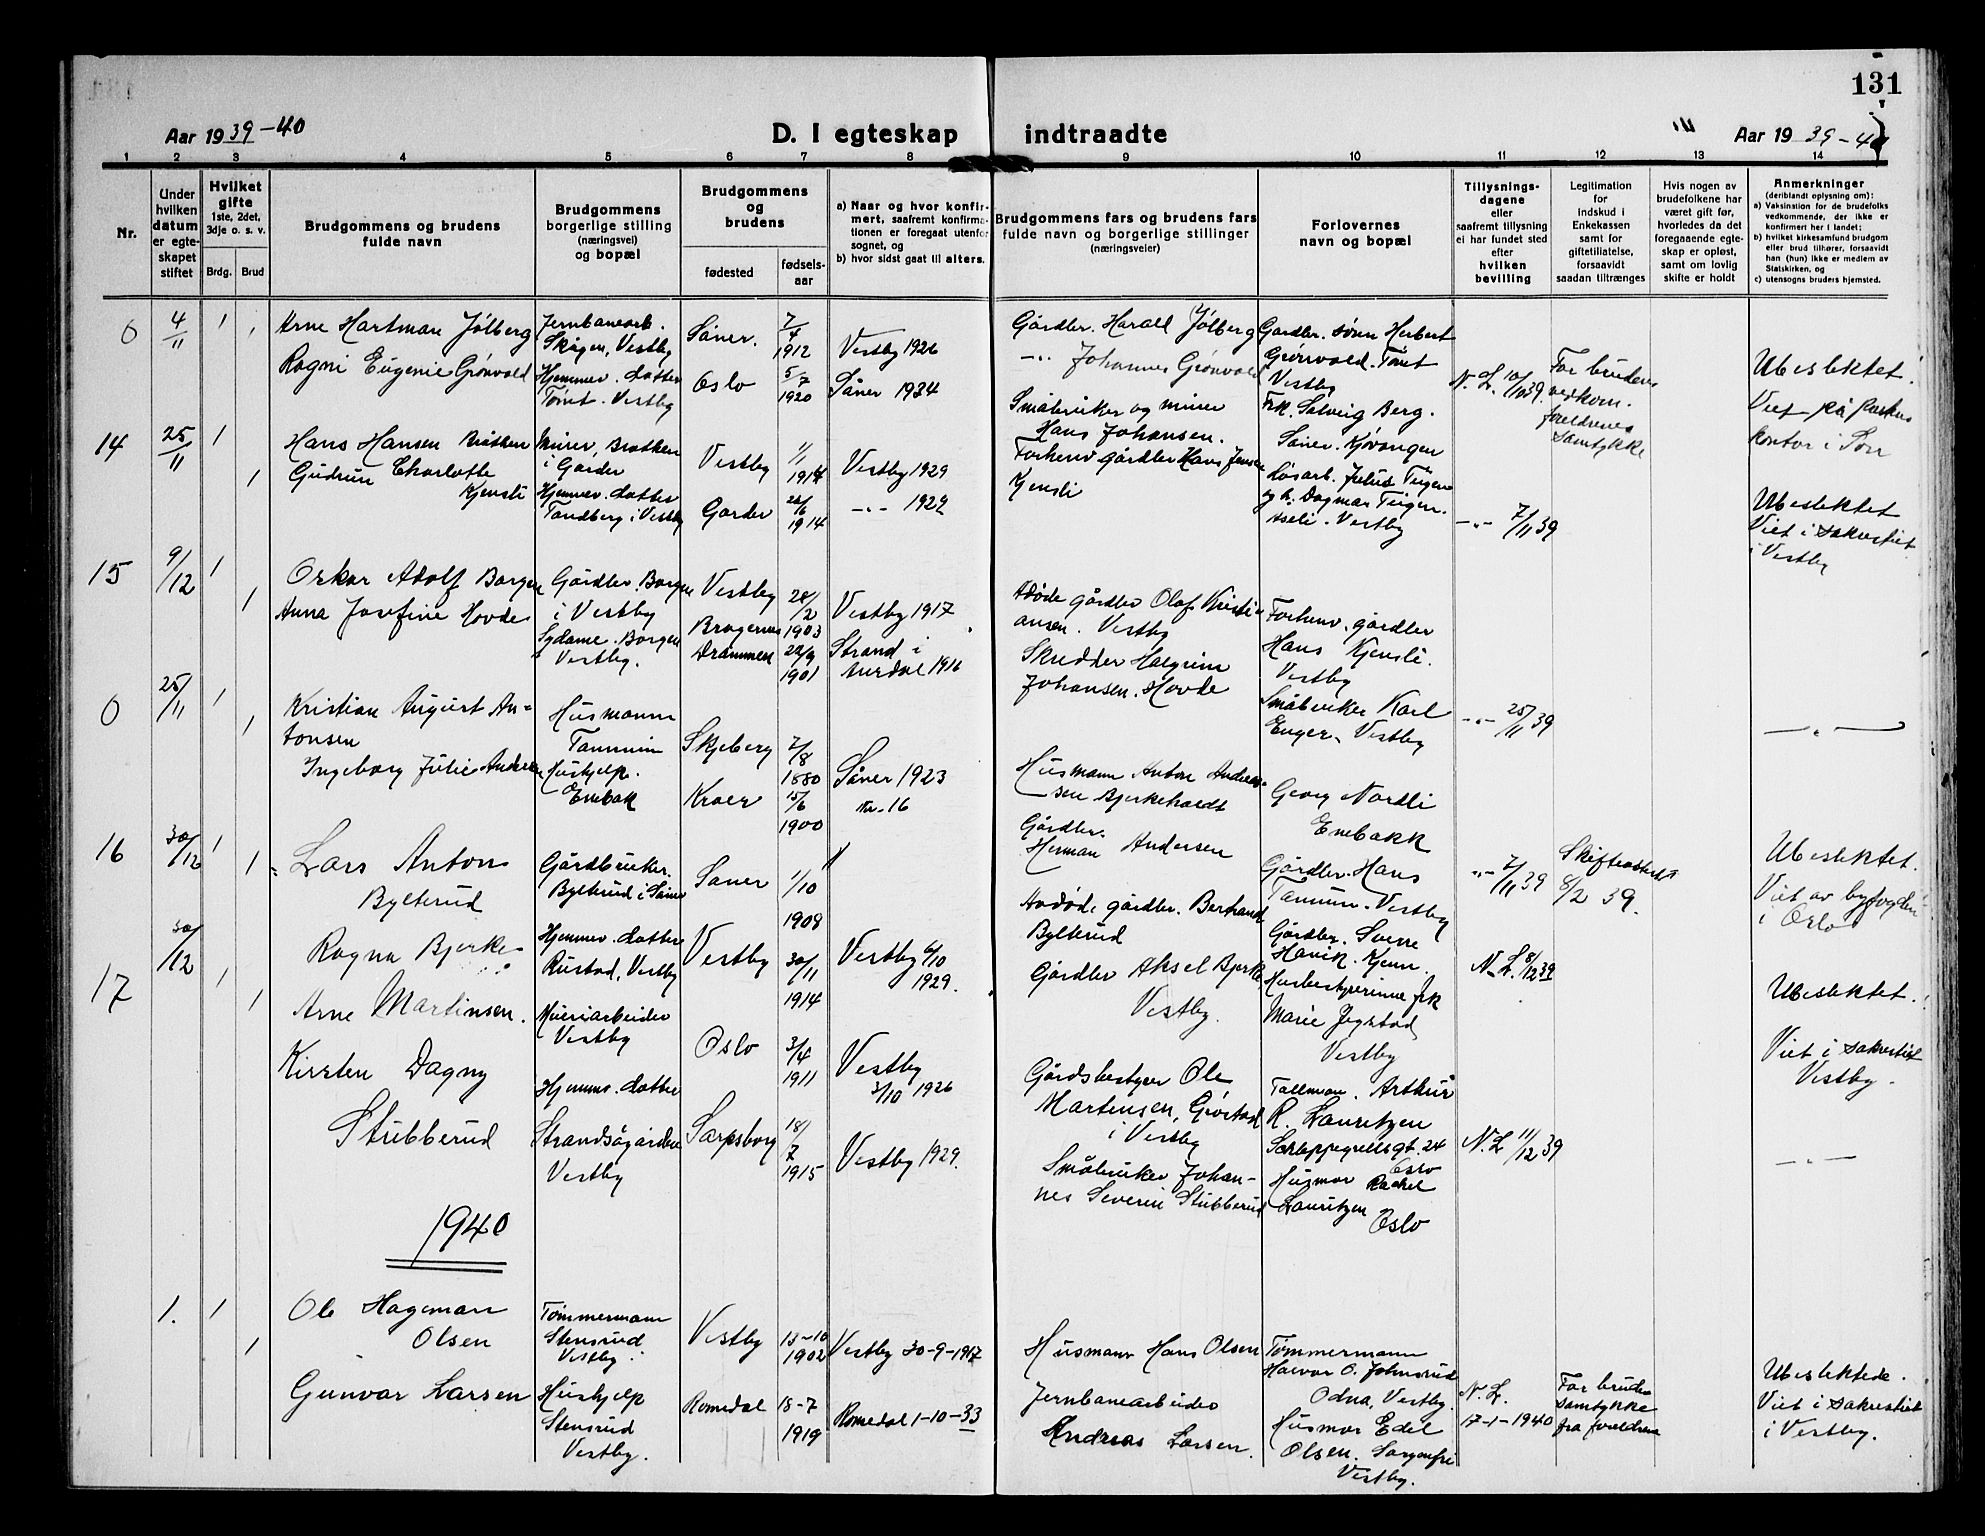 131
Aar 1939-40
D. I egteskap
indtraadte
Aar 1939-40
1 2 3 4 5 6 7 8 9 10 11 12 13 14
Nr.
Under hvilken datum er egteskapet stiftet
Hvilket gifte 1ste, 2det, 3dje o. s. v.
Brdg. Brud
Brudgommens og brudens fulde navn
Brudgommens borgerlige stilling (næringsvei) og bopæl
Brudgommens og brudens
fødested
fødselsaar
a) Naar og hvor konfirmert, saafremt konfirmationen er foregaat utenfor sognet, og
b) hvor sidst gaat til alters.
Brudgommens fars og brudens fars fulde navn og borgerlige stillinger (næringsveier)
Forlovernes navn og bopæl
Tillysningsdagene eller saafremt tillysning ei har fundet sted efter hvilken bevilling
Legitimation for indskud i Enkekassen samt for giftetillatelse, forsaavidt saadan tiltrænges
Hvis nogen av brudefolkene har været gift før, hvorledes da det foregaaende egteskap er opløst, samt om lovlig skifte er holdt
Anmerkninger
(deriblandt oplysning om):
a) Vaksination for de brudefolks vedkommende, der ikke er konfirmert her i landet;
b) hvilket kirkesamfund brudgom eller brud tilhører, forsaavidt han (hun) ikke er medlem av Statskirken, og
c) utensogns bruders hjemsted.
0 4/11 1 1
Arne Hartman Jølberg
Ragni Eugenie Grønvold
Jernbanearb.
Skogen, Vestby
Hjemmev. datter
Tomt. Vestby
Såner. 7/4 1912 Vestby 1926
Oslo 5/7 1920 Såner 1934
Gårdbr. Harall Jølberg
-"- Johannes Grønvold
Gardbr. sønn Herbert
Grönvold. Tomt
Vestby
Frk. Solveig Berg.
Såner. Kjøvangen
N. L. 10/10 39.
For brudens
vedkom.
foreldrenes
samtykke
Ubeslektet.
Viet på
kontor i Son
14 25/11 1 1
Hans Hansen Bråtken
Gudrun Charlotte
Kjensli
Murer, Bråtken
i Garder
Hjemmev. datter
Tandberg i Vestby
Vestby 1/1 1914 Vestby 1929
Garder 1914 -"- 1929
Småbruker og murer
Hans Johansen.
Forhenv gårdbr Hans Jensen
Kjensli
Løsarb. Julius Teigen
og h. Dagmar Teigen.
Vestby
-"- 7/11 39
Ubeslektet
Viet i sakrestiet
i Vestby
15 9/12 1 1
Oskar Adolf Borgen
Anna Josefine Hovde
Gårdbr. Borgen
i Vestby
Sydame. Borgen
Vestby.
Vestby 28/2 1903 Vestby 1917
Bragernes
Drammen 22/9 1901 Strand i
Aurdal 1916
Avdøde gårdbr Olaf Kristi
ansen. Vestby
Skredder Halgrim
Johansen. Hovde
Forhenv. gårdbr
Hans Kjensli.
Vestby
Småbruker Karl
Enger. Vestby
-"- 25/11 39
-"-
0 25/11 1 1
Kristian August An-
tonsen
Ingeborg Julie Andersen
Husmann
Tannum
Hushjelp.
Enebak
Skjeberg 7/8 1880 Såner 1923
Kroer 15/6 1900 Kr. 16
Husmann Anton Andres-
sen Bjerkeholdt
Gårdbr.
Herman Andersen
Georg Nordli
Enebakk
Gårdbr. Hans
Tannum. Vestby
-"- 7/11 39
Skifteattest
8/2 39.
Ubeslektet.
Viet av byfogden
i Oslo
16 30/12 1 1
Lars Anton
Bylterud
Ragna Bjerke
Gårdbruker.
Bylterud i Såner
Hjemmev. datter
Rustad, Vestby
Såner 1/10 1908
Vestby 30/11 1914 Vestby 6/10
1929.
Avdøde gårdbr. Bertrand
Bylterud
Gårdbr Aksel Bjerke
Vestby.
Gårdbr. Sverre
Husbestyrerinne frk
Marie Jegstad
Vestby
N. L. 8/12 39
Ubeslektet.
Viet i sakrestiet
Vestby.
17 30/12 1 1
Arne Martinsen.
Kirsten Dagny
Stubberud
Meieriarbeider
Vestby
Hjemmv. datter
Strandsågården
Vestby
Oslo 3/4 1911 Vestby
3/10 1926
Sarpsborg 18/7 1915 Vestby 1929.
Gårdsbestyrer Ole
Martinsen, Grøstad
i Vestby
Småbruker Johan-
nes Severin Stubberud
Tollmann. Arthur
R. Lauritzen
Schleppegrellsgt. 24
Oslo
Husmor Rachel
Lauritzen
Oslo
N. L 11/12 39
-"-
1940
1. 1 1
Ole Hageman
Olsen
Gunvor Larsen
Tømmermann
Stensrud
Vestby
Hushjelp
Stensrud
Vestby.
Vestby 13-10 1902 Vestby 30-9-1917
Romedal 18-7 1919 Romedal 1-10-33
Husmann Hans Olsen
Jernbanearbeider
Andreas Larsen.
Tømmermann
Halvor O. Johnsrud
Odna, Vestby.
Husmor Edel
Olsen. Sorgenfri
Vestby.
N. L.
17-1-1940
For bruden
samtykke
fra foreldrene
Ubeslektede.
Viet i sakrestiet
i Vestby.